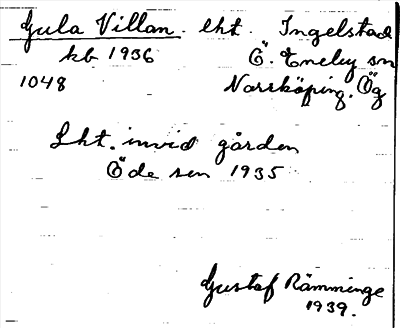 Gula Villan. lht. Ingelstad
kb 1936 Ö. Eneby sn
1048 Norrköping. Ög
Lht. invid gården
Öde sen 1935
Gustaf Rämminge
1939.